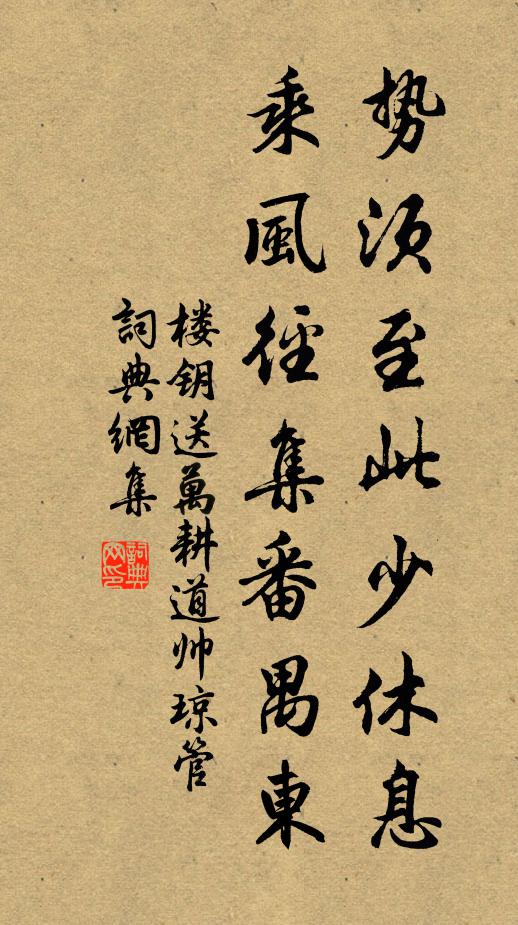 势须至此少休息
乘風徑集番禺東
楼钥送萬耕道帅琼管
詞典網集
詞典网印